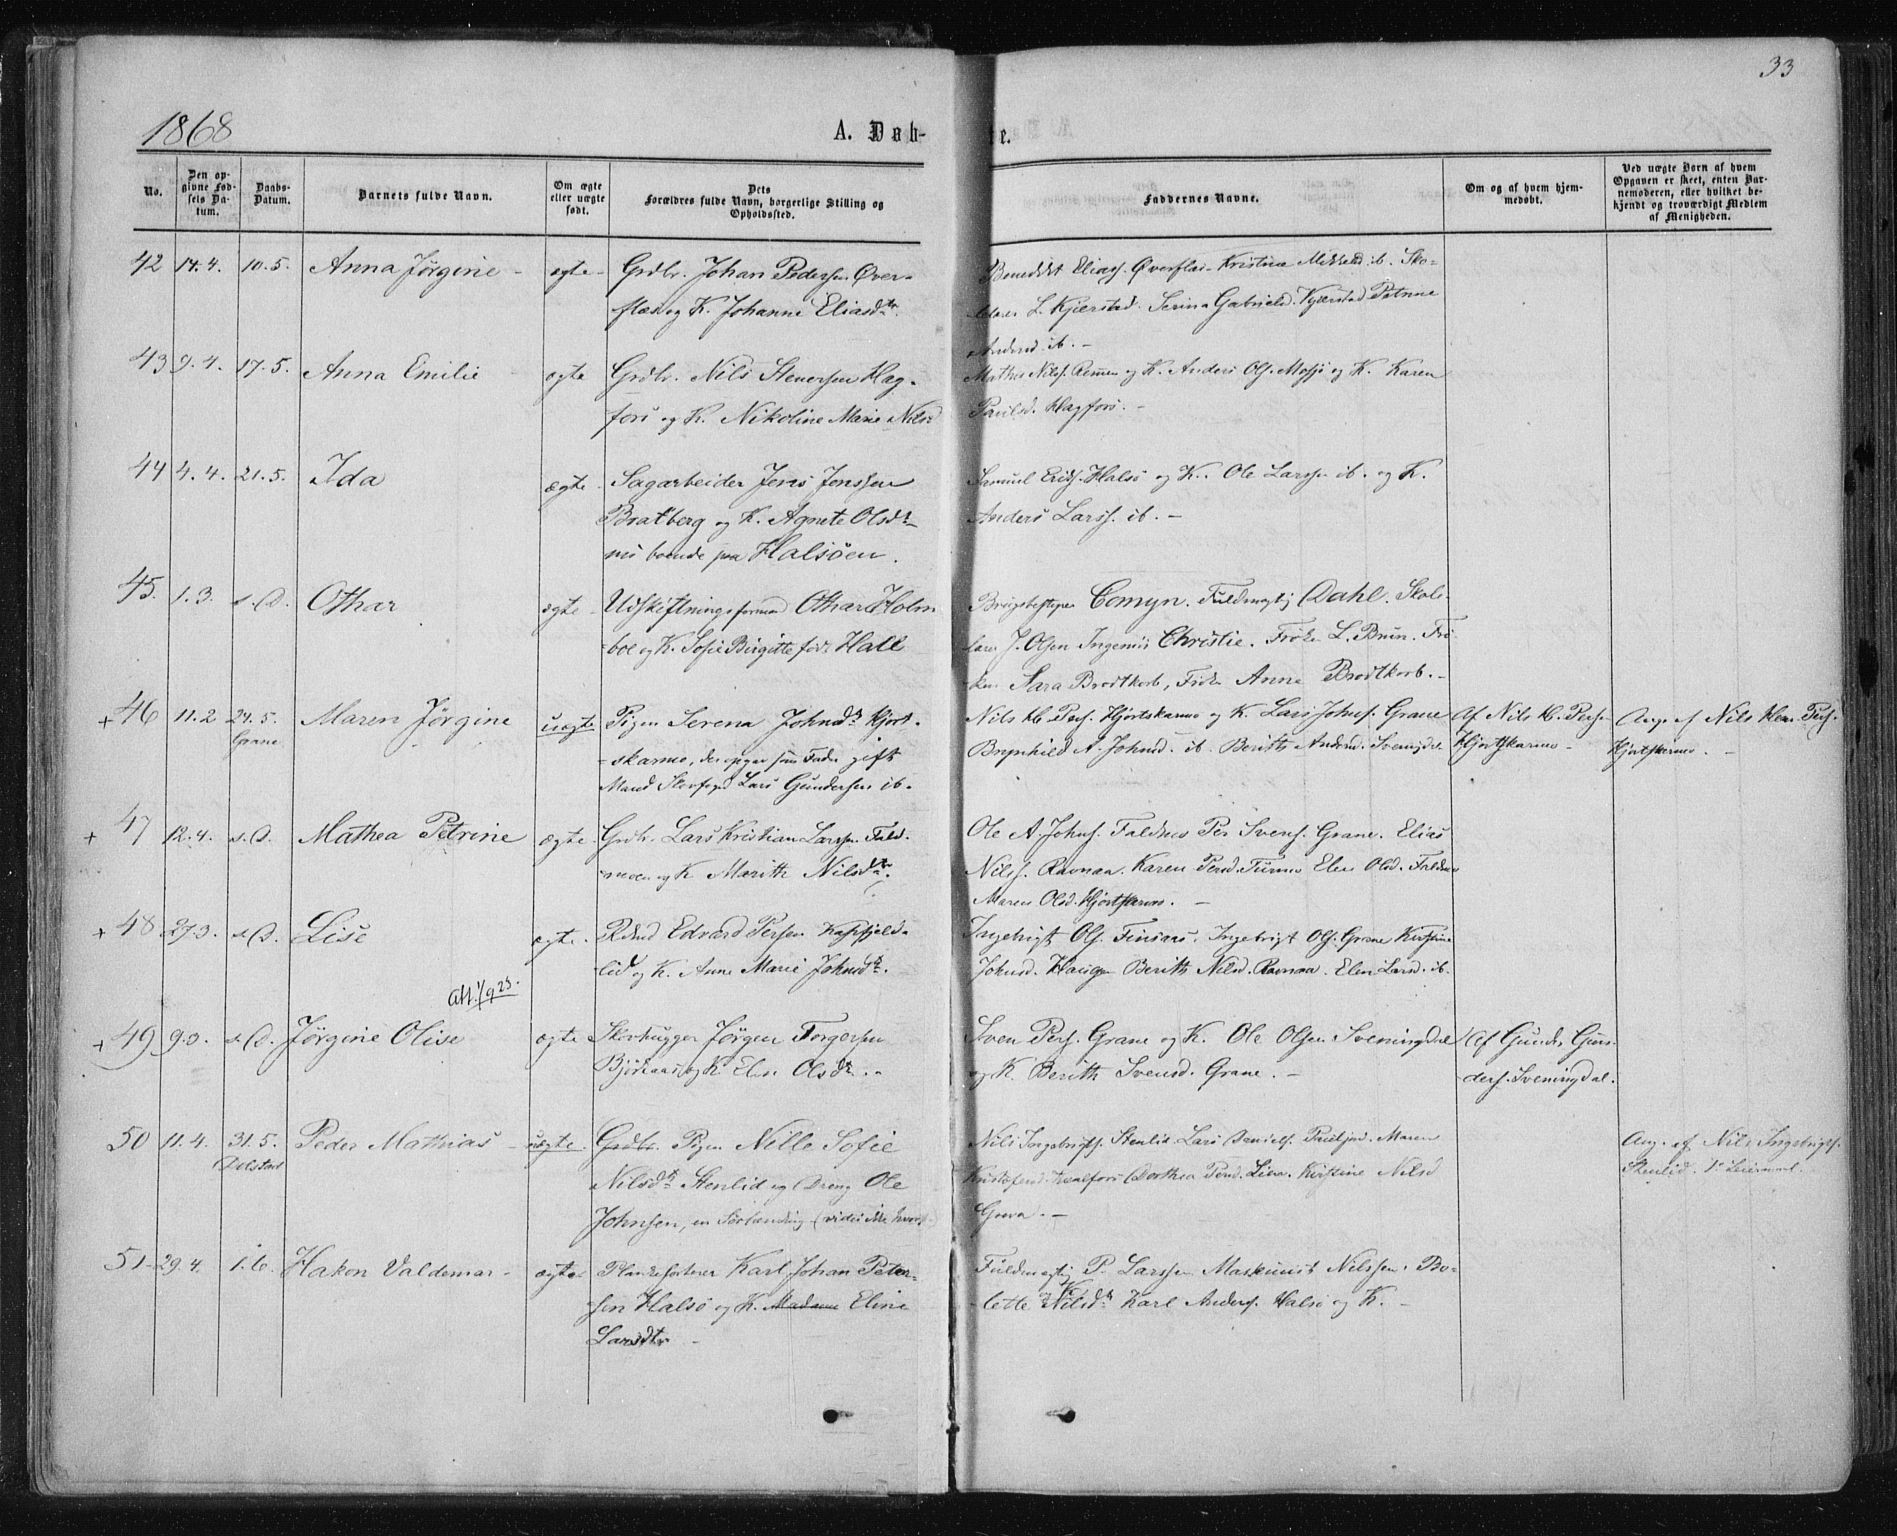 33
1868
A. Døb-
te.
No.
Den op-
givne Fød-
sels Da-
tum.
Daabs-
Datum.
Barnets fulde Navn.
Om ægte
eller uægte
født.
Dets
Forældres fulde Navn, borgerlige Stilling og
Opholdssted.
Faddernes Navne.
Om og af hvem hjem-
medøbt.
Ved uægte Børn af hvem
Opgaven er skeet, enten Bar-
nemoderen, eller hvilket be-
kjendt og troværdigt Medlem
af Menigheden.
42 14.4. 10.5. Anna Jørgine - ægte - Grdbr. Johan Pedersen Øver-
flæs og K. Johanne Eliasdtr.
Benedikt Eliass. Øverflæs Kristine ib. Sko-
lelærer L. Kjærstad. Serina Gabrielsd. Kjærstad Petrine
Andersd. ib. -
43 9.4. 17.5. Anna Emilie ægte Grdbr. Nils Stenersen Hag-
fors og K. Nikoline Marie Nilsd
Mathis Nilss. Remen og K. Anders Ols. Mosjø og K. Karen
Paulsd. Hagfors. -
44 4.4. 21.5. Ida ægte - Sagarbeider Jens Jonssen
Bratberg og K. Agnete Olsdtr
nu boende paa Halsøen.
Samuel Erichs. Halsø og K. Ole Larssen ib. og K.
Anders Larss. ib. -
45. 1.3. s.D. Othar ægte - Udskiftningsformand Othar Holm-
boe og K. Sofie Birgitte født Hall
Brugsbestyrer Comyn. Fuldmægtig Dahl. Skole-
lærer J. Olsen Ingeniør Christie. Frøken L. Brun. Frø-
ken Sara Brodtkorb, Frøken Anna Brodtkorb. -
+ 46 11.2 24.5. Grane Maren Jørgine uægte Pigen Serena Johnsdtr Hjort-
skarmo, der opgav som Fader gift
Mand Skovfoged Lars Gundersen ib.
Nils H. Pers. Hjortskarmo og K. Lars Johns. Grane
Brynhild A. Johnsd. ib. Berith Andersd. Sveningdal
Af Nils H. Pers.
Hjortskarmo -
Ang. af Nils Hen. Pers.
Hjortskarmo. -
+ 47 12.4. s.D. Mathea Petrine ægte - Grdbr. Lars Kristian Larssen Fald-
moen og K Marith Nilsdtr.
Ole A. Johns. Faldmo Per Svens. Grane. Elias
Nilss. Ravnaa. Karen Persd. Turmo Elen Olsd. Faldmo
Maren Olsd. Hjortskarmo. -
+ 48 27.3. s.D. Lise ægte - Rdmd Edvard Persen Kapfjeld-
lid og K. Anne Marie Johnsdtr.
Ingebrigt Ols. Finsaas. Ingebrigt Ols. Grane Kirstine
Johnsd. Haugen Berith Nilsd. Ravnaa. Elen Larsd. ib.
Att. 1/9 23.
+ 49 9.3. s.D. Jørgine Olise ægte Skovhugger Jørgen Torgersen
Bjørkaas og K. Elen Olsdtr. -
Sven Pers. Grane og K. Ole Olsen Sveningdal
og K. Berith Svensd. Grane. -
Af Gunder Gun-
ders. Sveningdal.
50 11.4. 31.5. Dolstad Peder Mathias - uægte. Grdbr. Pigen Nille Sofie
Nilsdtr Stenlid og Dreng Ole
Johnsen, en Sørlænding (vides ikke hvorf.)
Nils Ingebrigts. Stenlid. Lars Daniels. Maren
Kristofersd. Kvalfors Dorthea Persd. Lien. Kirstine Nilsd
-
Ang. af Nils Ingebrigts.
Stenlid. 1ste Leiermaal.
51 29.4. 1.6. Hakon Valdemar - ægte - Plankesorterer Karl Johan Peter-
sen Halsø og K. Madame Eline
Larsdtr -
Fuldmægtig P. Larssen Maskinist Nilssen. Bo-
lette K Nilsdtr Karl Anders. Halsø og K. -